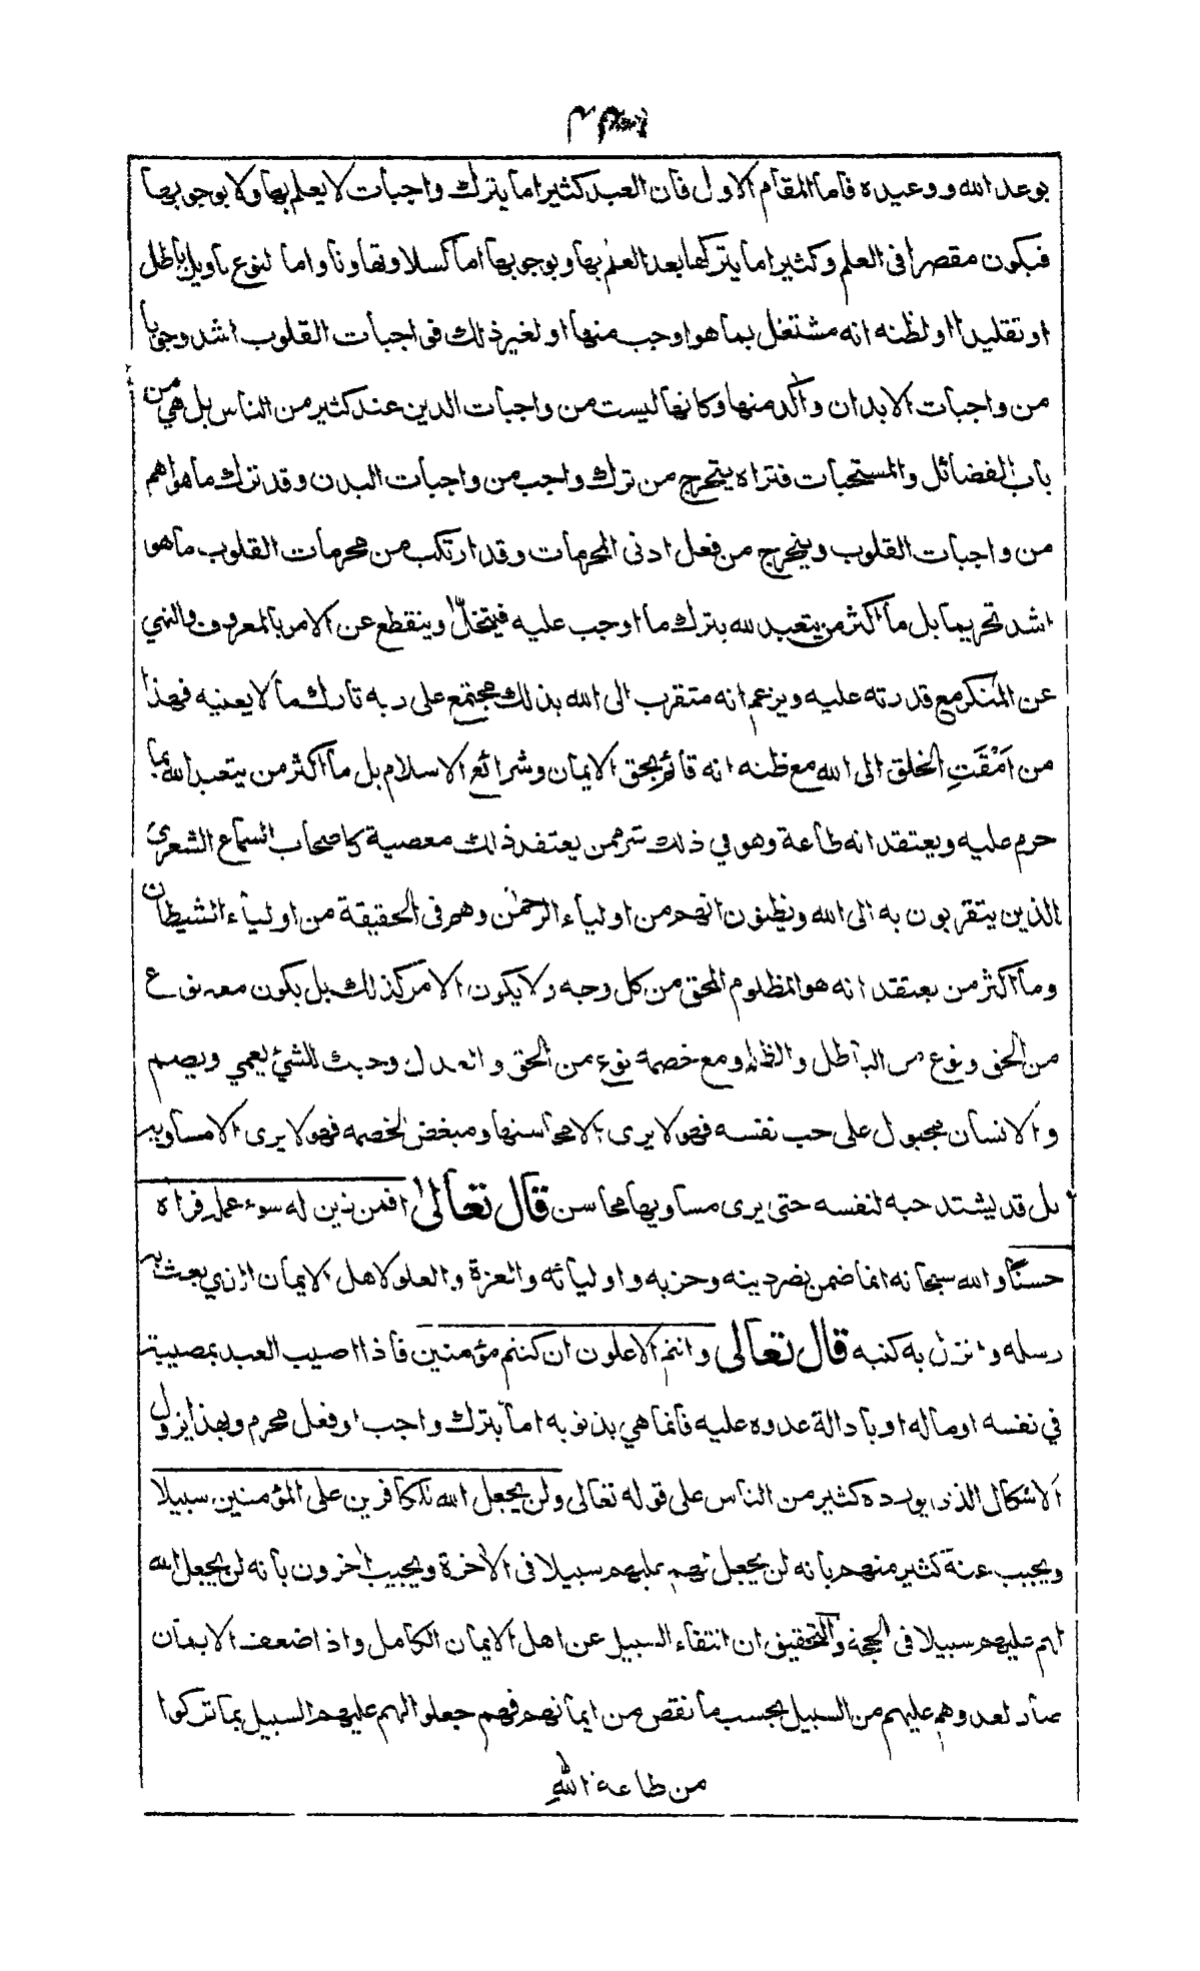 بوعد الله ووعيده فاما المقام الاول فان العبد كثيرا ما يترك واجبات لا يعلم بها ولا بوجوبها
فيكون مقصرا فى العلم وكثيرا ما يتركها بعد العلم بها وبوجوبها اما كسلا وتهاونا واما لنوع تاويل باطل
او تقليدا او لظنه انه مشتغل بما هو اوجب منها او لغير ذلك فواجبات القلوب اشد وجوبا
من واجبات الابدان وآكد منها وكانها ليست من واجبات الدين عند كثير من الناس بل هي من
باب الفضائل والمستحبات فتراه يتحرج من ترك واجب من واجبات البدن وقد ترك ما هو اهم
من واجبات القلوب ويتحرج من فعل ادنى المحرمات وقد ارتكب من محرمات القلوب ما هو
اشد تحريما بل ما اكثر من يتعبد لله بترك ما اوجب عليه فيتخلّا وينقطع عن الامر بالمعروف والنهي
عن المنكر مع قدرته عليه ويزعم انه متقرب الى الله بذلك مجتمع على ربه تارك ما لا يعنيه فهذا
من اَمْقَتِ الخلق الى الله مع ظنه انه قائم بحق الايمان وشرائع الاسلام بل ما اكثر من يتعبد الله بما
حرم عليه ويعتقد انه طاعة وهو في ذلك شر ممن يعتقد ذلك معصية كاصحاب السماع الشعرى
الذين يتقربون به الى الله ويظنون انهم من اولياء الرحمٰن وهم فى الحقيقة من اولياء الشيطان
وما اكثر من يعتقد انه هو المظلوم المحق من كل وجه ولا يكون الامر كذلك بل يكون معه نوع
من الحق ونوع من الباطل والظلم ومع خصمه نوع من الحق والعدل وحبك للشئ يعمي ويصم
والانسان مجبول على حب نفسه فهو لا يرى الا محاسنها ومبغض لخصمه فهو لا يرى الا مساويه
بل قد يشتد حبه لنفسه حتى يرى مساويها محاسن قال تعالى افمن زين له سوء عمله فراه
حسنًا والله سبحانه انما ضمن نصر دينه وحزبه واوليائه والعزة والعلو لاهل الايمان الذي بعث به
رسله وانزل به كتبه قال تعالى وانتم الاعلون ان كنتم مؤمنين فاذا اصيب العبد بمصيبة
في نفسه او ماله او بادالة عدوه عليه فانما هي بذنوبه اما بترك واجب او فعل محرم وبهذا يزول
الاشكال الذى يورده كثير من الناس على قوله تعالى ولن يجعل الله للكافرين على المؤمنين سبيلا
ويجيب عنه كثير منهم بانه لن يجعل لهم عليهم سبيلا فى الآخرة ويجيب آخرون بانه لن يجعل الله
لهم عليهم سبيلا فى الحجة والتحقيق ان انتفاء السبيل عن اهل الايمان الكامل واذا ضعف الايمان
صار لعدوهم عليهم من السبيل بحسب ما نقص من ايمانهم فهم جعلوا لهم عليهم السبيل بما تركوا
من طاعة الله